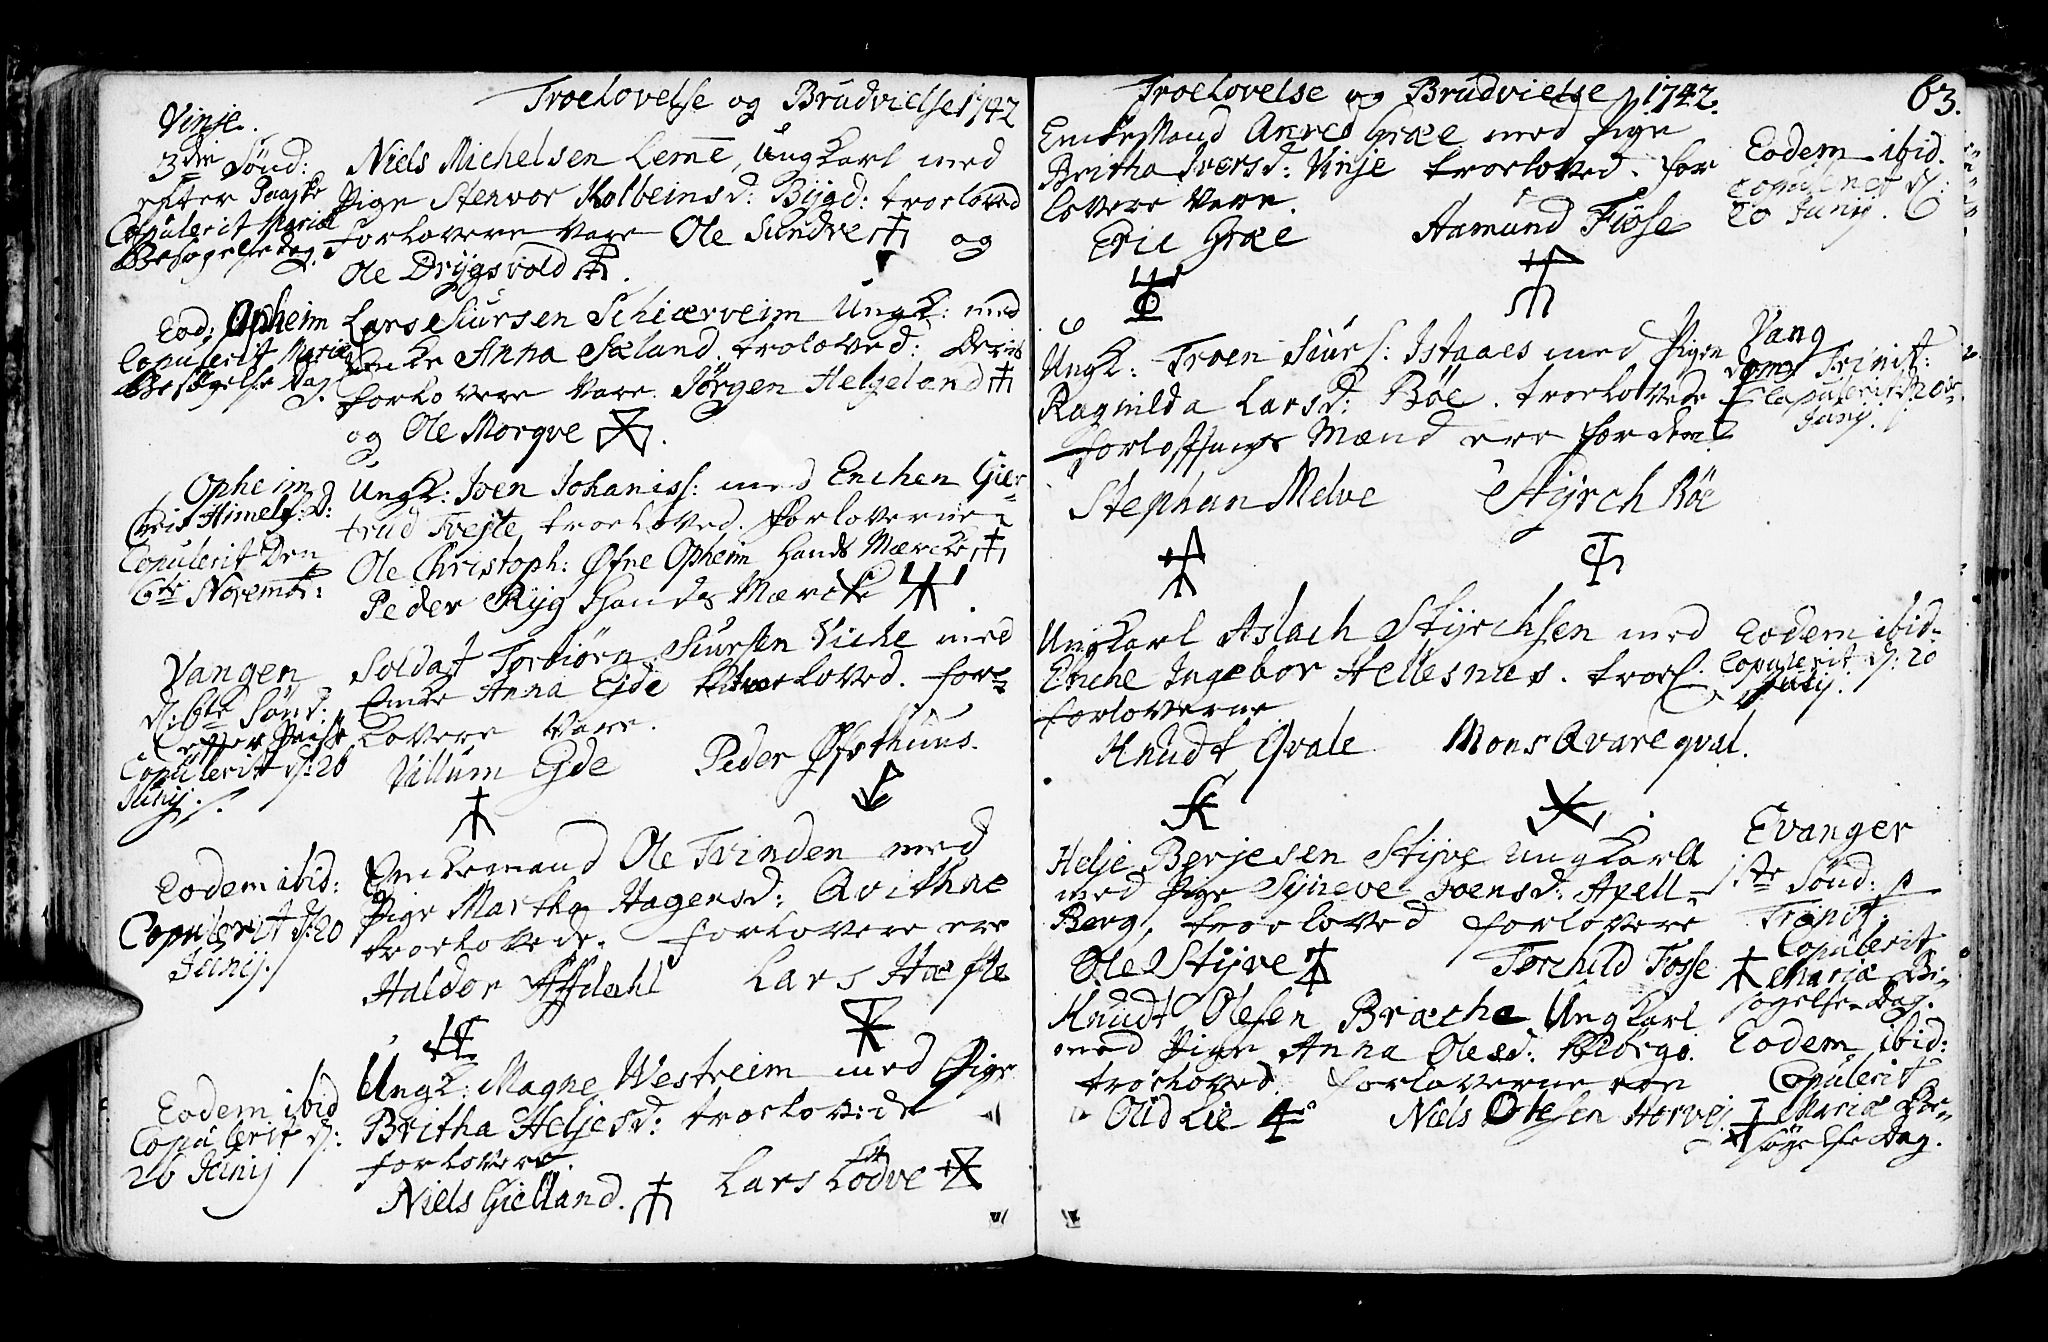 Troelovelse og Brudvielse 1742
Vinje.
3die Sønd:
efter Paaske
Copulerit Mariæ
Besøgelse dag.
Niels Michelsen Leme, Ungkarl med
Pige Stenvor Kolbeinsd: Bijgd: troeloved
forlovere vare Ole Sundve og
Ole Drijgsvold
Eod: Opheim
Copulerit Mariæ
Besøgelse Dag.
Lars Siursen Schierveim Ungk: med
Enke Anna Sæland troloved: Deris
forlovere vare Jørgen Helgeland
og Ole Morqve
Opheim
Chris Himelf: D:
Copulerit Den
6te Novembr:
Ungk: Joen Johaniss: med Enchen Gier-
trud Tvejte troeloved. forloverne
Ole Christoph: Øfne Opheim hands Mærcke
Peder Rijg hands Mærcke
Vangen
d: 6te Sønd:
efter Paask
Copulerit d: 26
Junij.
Soldat Torbiørn Siursen Viche med
Enke Anna Ejde troeloved. for-
lovere vare.
Villum Ejde Peder Øfsthuus.
Eodem ibid:
Copulerit d: 20
Junij.
Enkemand Ole Tvinden med
Pige Martha Hagensd: Qvithne
troelovede. forlovere ere
Haldor Afdahl Lars Hæfte
Eodem ibid
Copulerit d:
26 Junij
Ungk: Magne Westreim med Pige
Britha Heljesd: troelovede
forlovere.
Niels Gielland. Lars Lødve
Troelovelse og Brudvielse 1742. 63.
Enkemand Anved Græe med Pige
Britha Iversd: Vinje troeloved. for
lovere vare.
Eric Græe Aamund Fiøse
Eodem ibid.
Copuleret d:
20 Junij.
Ungk: Troen Siurs: Istaaes med Pigen
Ragnilda Larsd: Bøe. troelovede
forloffnings Mænd ere for dem
Stephan Melve Stijrch Røe
Vang
Dom. Trinit:
Copulerit 20
Junij.
Ungkarl Aslach Stijrchsen med
Enche Ingebor Hellesnes. troel.
forloverne
Knudt Qvale Mons Qvareqval.
Eodem ibid.
Copulerit d: 20
Junij.
Helje Berjesen Stijve Ungkarl
med Pige Sijneve Joensd: Apell-
Berg, troeloved forlovere
Ole Stijve Torchild Fosse
Evanger
1ste Sønd: p
Trinit:
Copulerit
Mariæ Be-
søgelse Dag.
Knudt Olesen Bræche Ungkarl
med Pige Anna Olesd:
troeloved. forloverne ere
Odd Lie Niels Olesen Horvej
Eodem ibid:
Copulerit
Mariæ Be-
søgelse Dag.